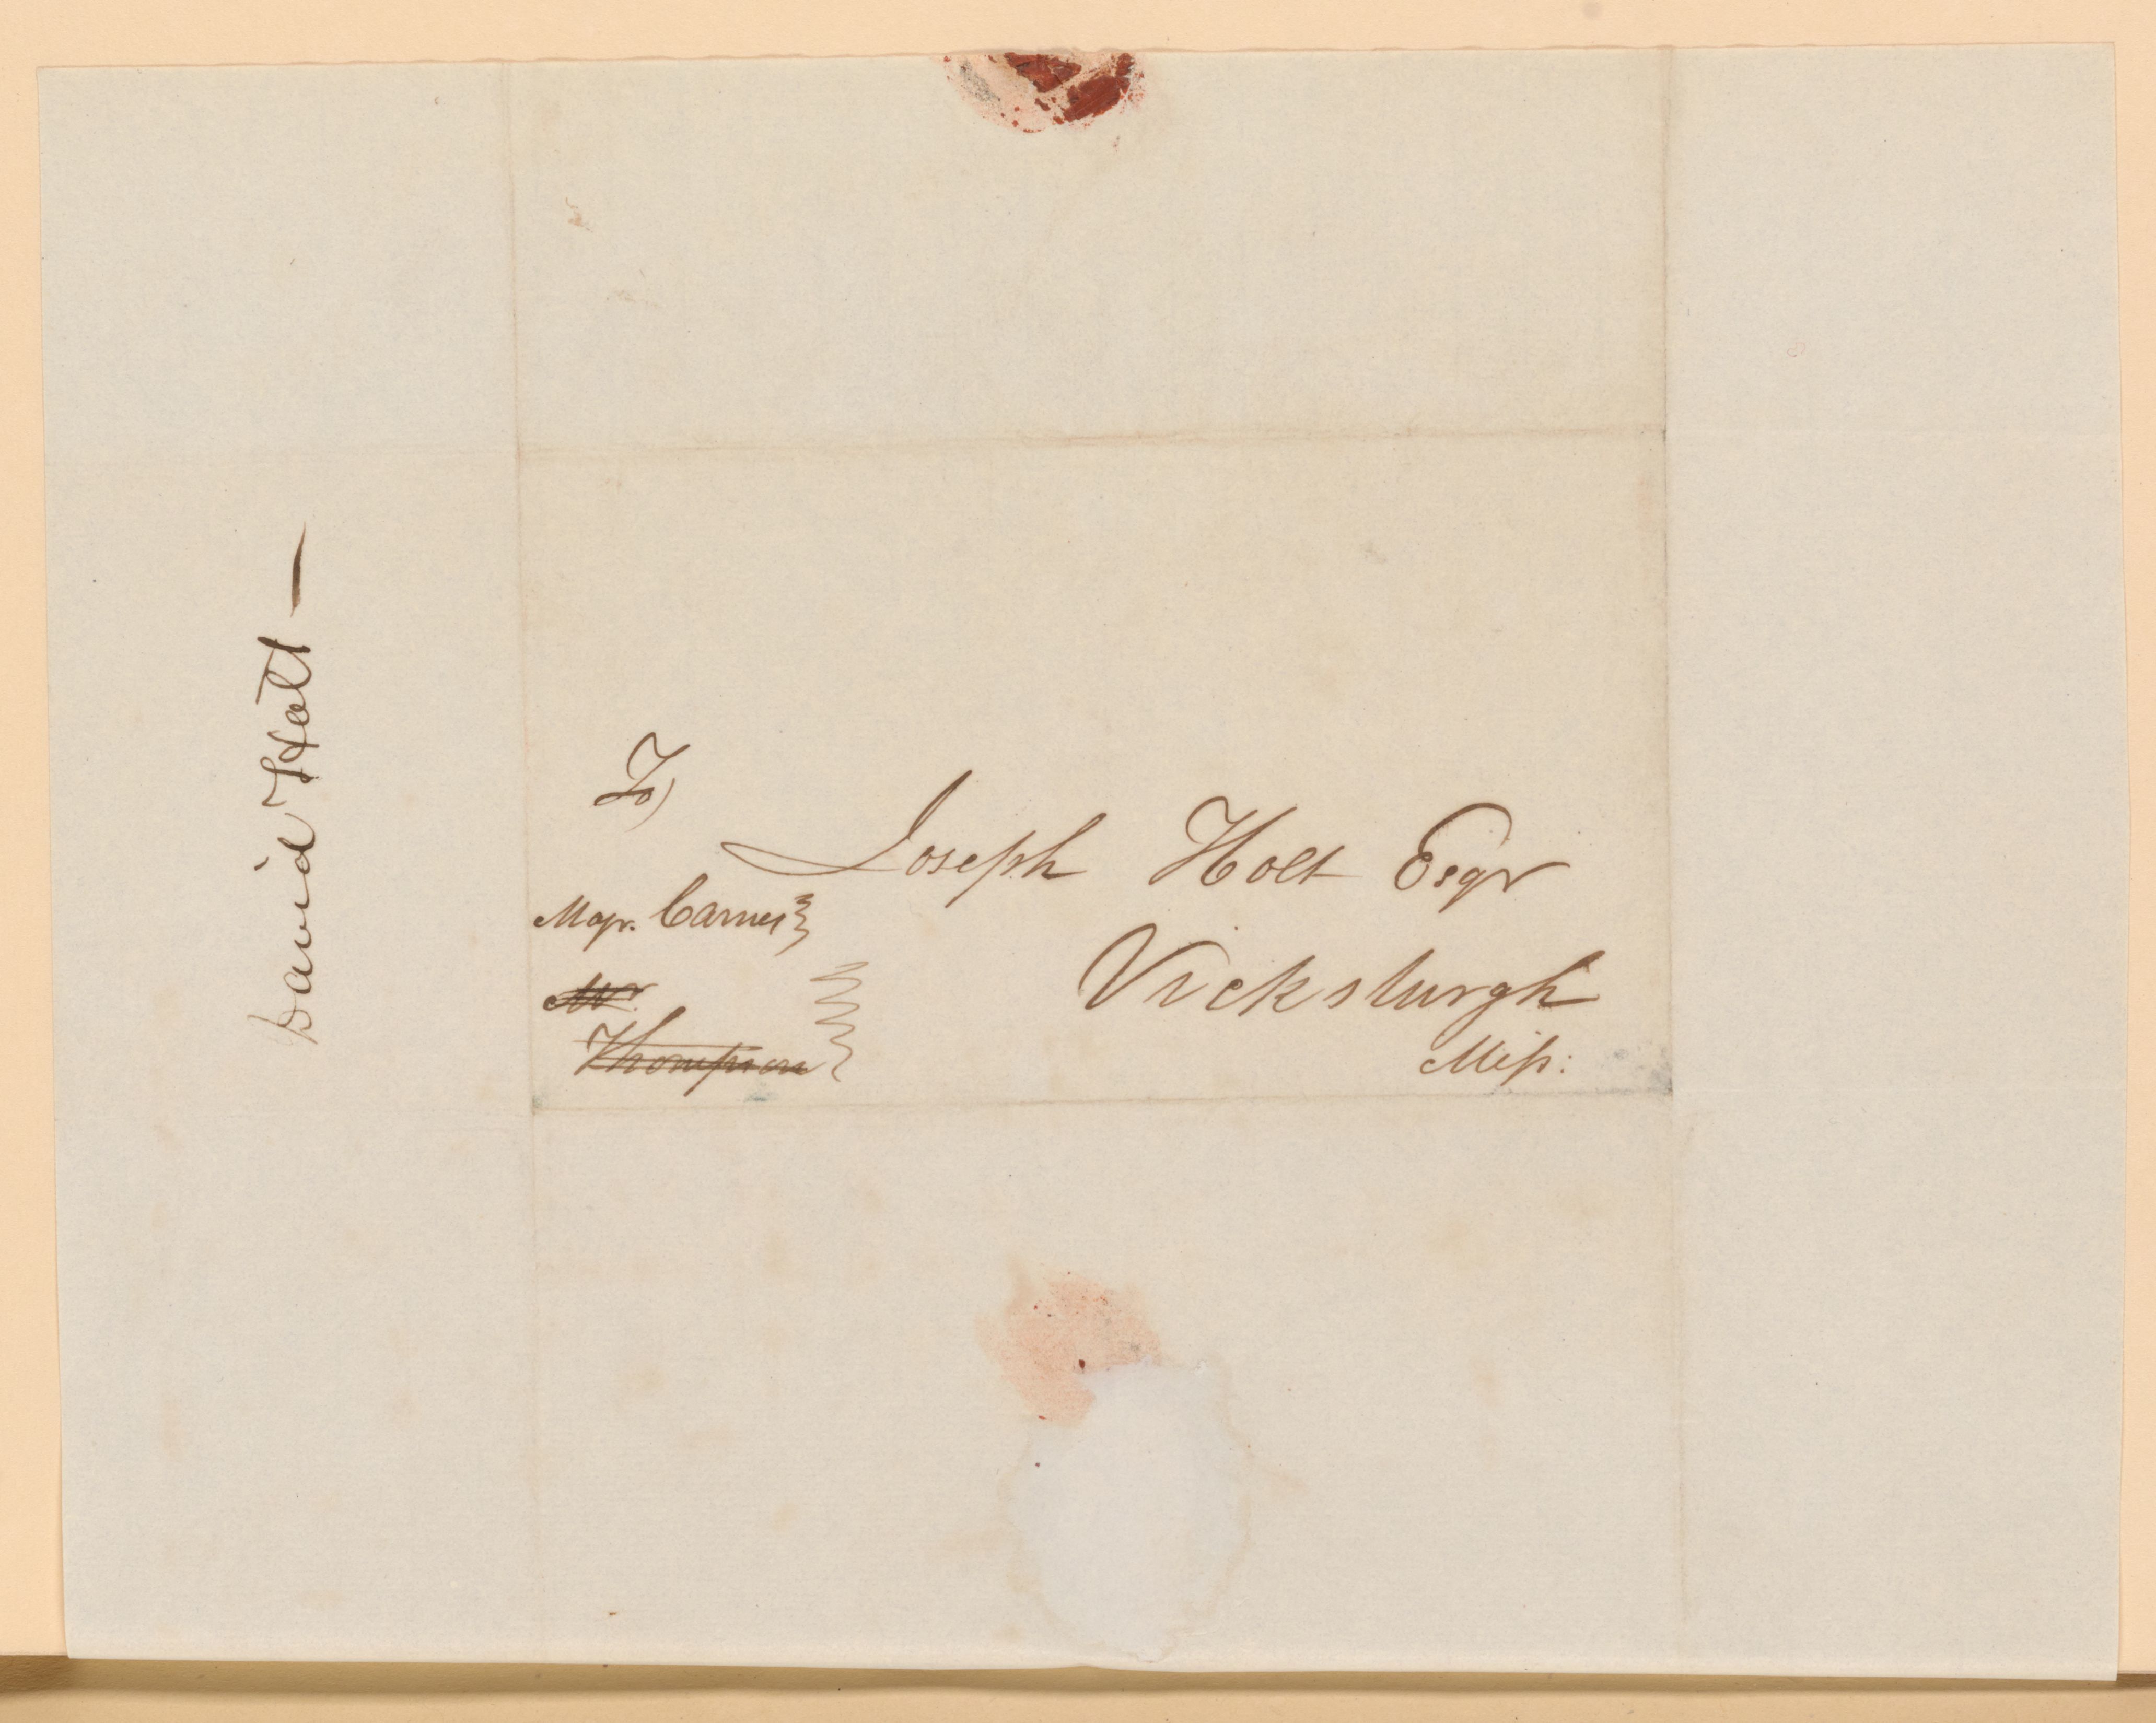 David Holt —
To)
Joseph Holt Esqr
Majr. Carnes
Mr.
Thompson
Vicksburgh
Miss: